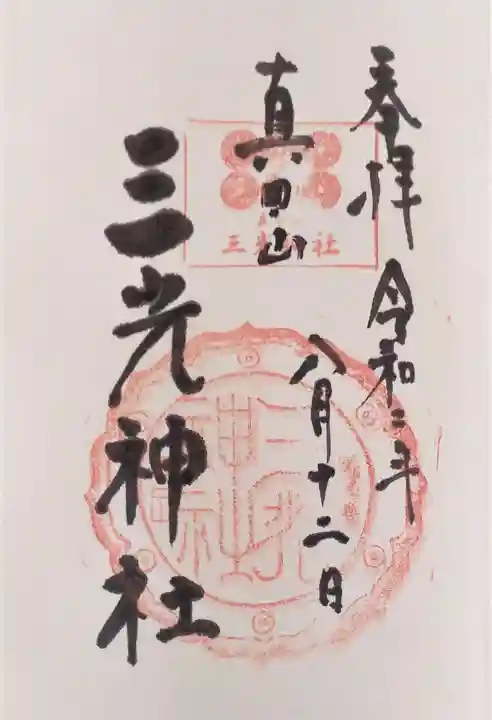 奉拝 令和二年
八月十二日
真田山
三光神社
三光神社